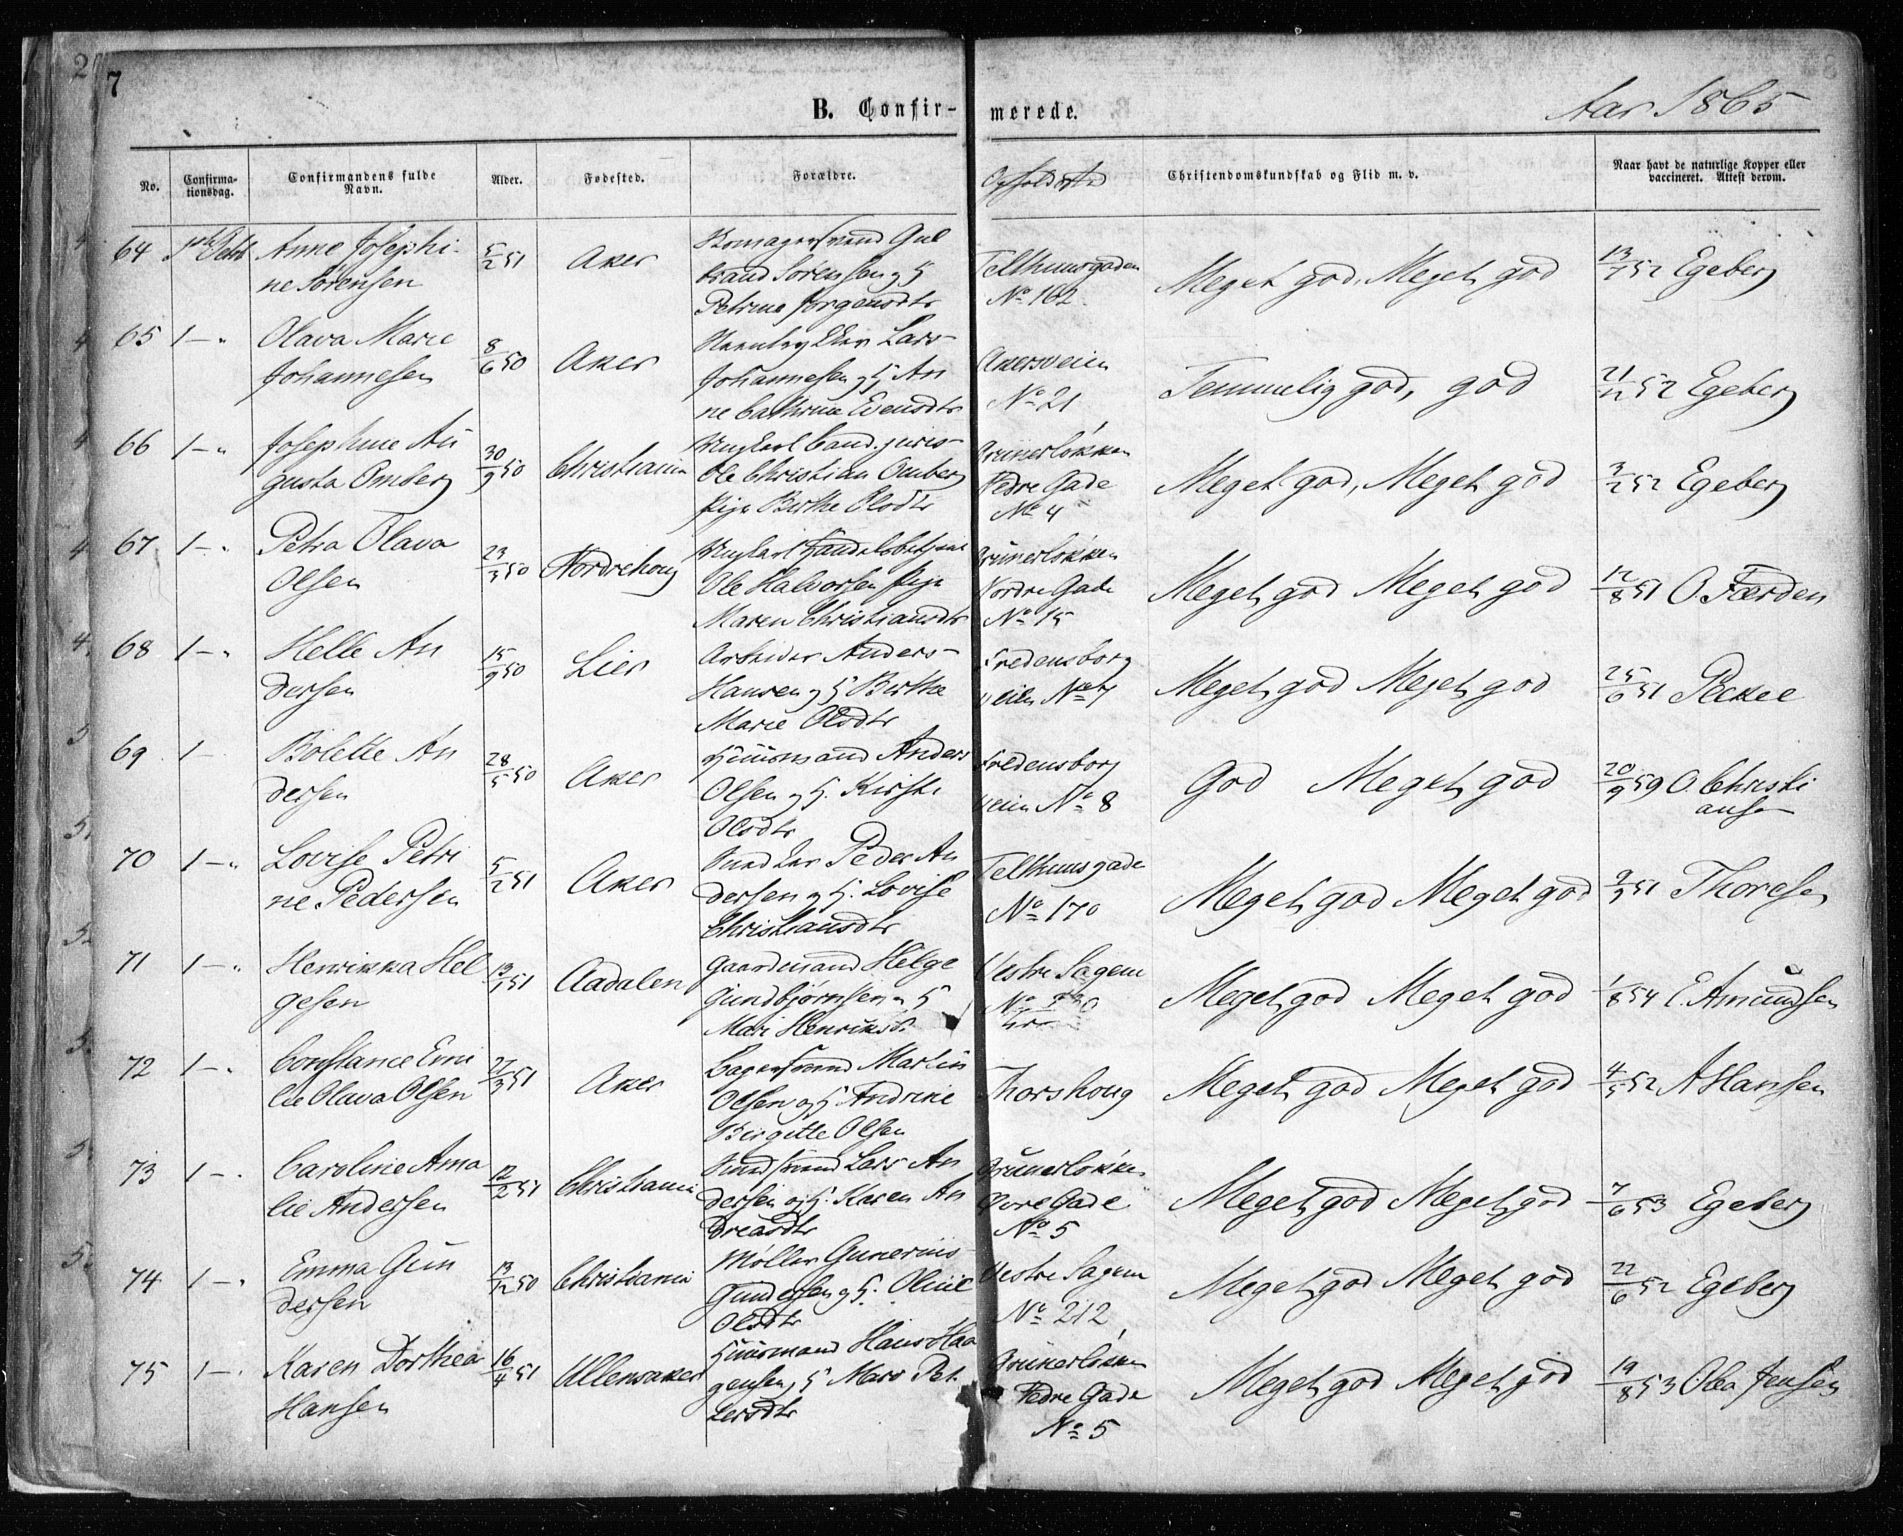 7
B. Confir- merede.
Aar 1865
No.
Confirma-
tionsdag.
Confirmandens fulde
Navn.
Alder.
Fødested.
Forældre.
Opholdssted
Christendomskundskab og Flid m. v.
Naar havt de naturlige Kopper eller
vaccineret. Attest derom.
64 1ste Octb Anne Josephi-
ne Sörensen
5/2 51 Aker
Gul
brand Sörensen og H
Petrine Jörgensdtr
Telthuusgaden
No 162
Meget god, Meget god
13/7 52 Egeberg
65 1 — " Olava Marie
Johannesen
8/6 50 Aker
Lars
Johannesen og H An
ne Cathrine Evensdtr
Akersveien
No 21
Temmelig god, god
21/11 52 Egeberg
66 1 — " Josephine Au
gusta Omberg
30/9 50 Christiania
Ungkarl Cand. juris
Ole Christian Omberg
Pige Birthe Olsdtr
Grünerlökken
Nedre Gade
No 4
Meget god, Meget god
3/2 52 Egeberg
67 1 — " Petra Olava
Olsen
23/3 50 Nordrehoug
Ungkarl Handelsbetjent
Ole Halvorsen Pige
Maren Christiansdtr
Grünerlökken
Nordre Gade
No 15
Meget god Meget god
12/8 51 O. Færden
68 1 — " Helle An
dersen
15/9 50 Lier
Arbeider Anders
Hansen og H Birthe
Marie Olsdtr
Fredensborg
veien No 7
Meget god Meget god
25/6 51 Peckel
69 1 — Bolette An
dersen
28/5 50 Aker
Huusmand Anders
Olsen og H. Kirsti
Olsdtr
Fredensborg
veien No 8
God Meget god
20/9 59 O. Christi
ansen
70 1 — " Lovise Petri
ne Pedersen
5/2 51 Aker
Peder An
dersen og H. Lovise
Christiansdtr
Telthuusgade
No 170
Meget god Meget god
9/9 51 Thoresen
71 1 — " Henrikka Hel
gesen
13/1 51 Aadalen
Gaardmand Helge
Gundbjörnsen og H
Mari Henriksdtr
Vestre Sagene
Meget god Meget god
1/8 54 E. Amundsen
72 1 — " Constance Emi
lie Olava Olsen
27/3 51 Aker
Martin
Olsen og H Andrine
Birgitte Olsen
Thorshoug
Meget god Meget god
4/5 52 A Hansen
73 1 — " Caroline Ama
lie Andersen
12/2 51 Christiania
Lars An
dersen og H. Karen An
dreasdtr
Grünerlökken
Övre Gade
No 5
Meget god Meget god
7/6 53 Egeberg
74 1 — " Emma Gun
dersen
13/12 50 Christiania
Möller Gunerius
Gundersen og H. Oline
Olsdtr
Vestre Sagene
No 212
Meget god Meget god
22/6 52 Egeberg
75 1 — " Karen Dorthea
Hansen
16/4 51 Ullensaker
Huusmand Hans Haa
gensen og H Mari Pet
tersdtr
Grünerlökken
Nedre Gade
No 5
Meget god Meget god
19/8 53 Ola Jensen